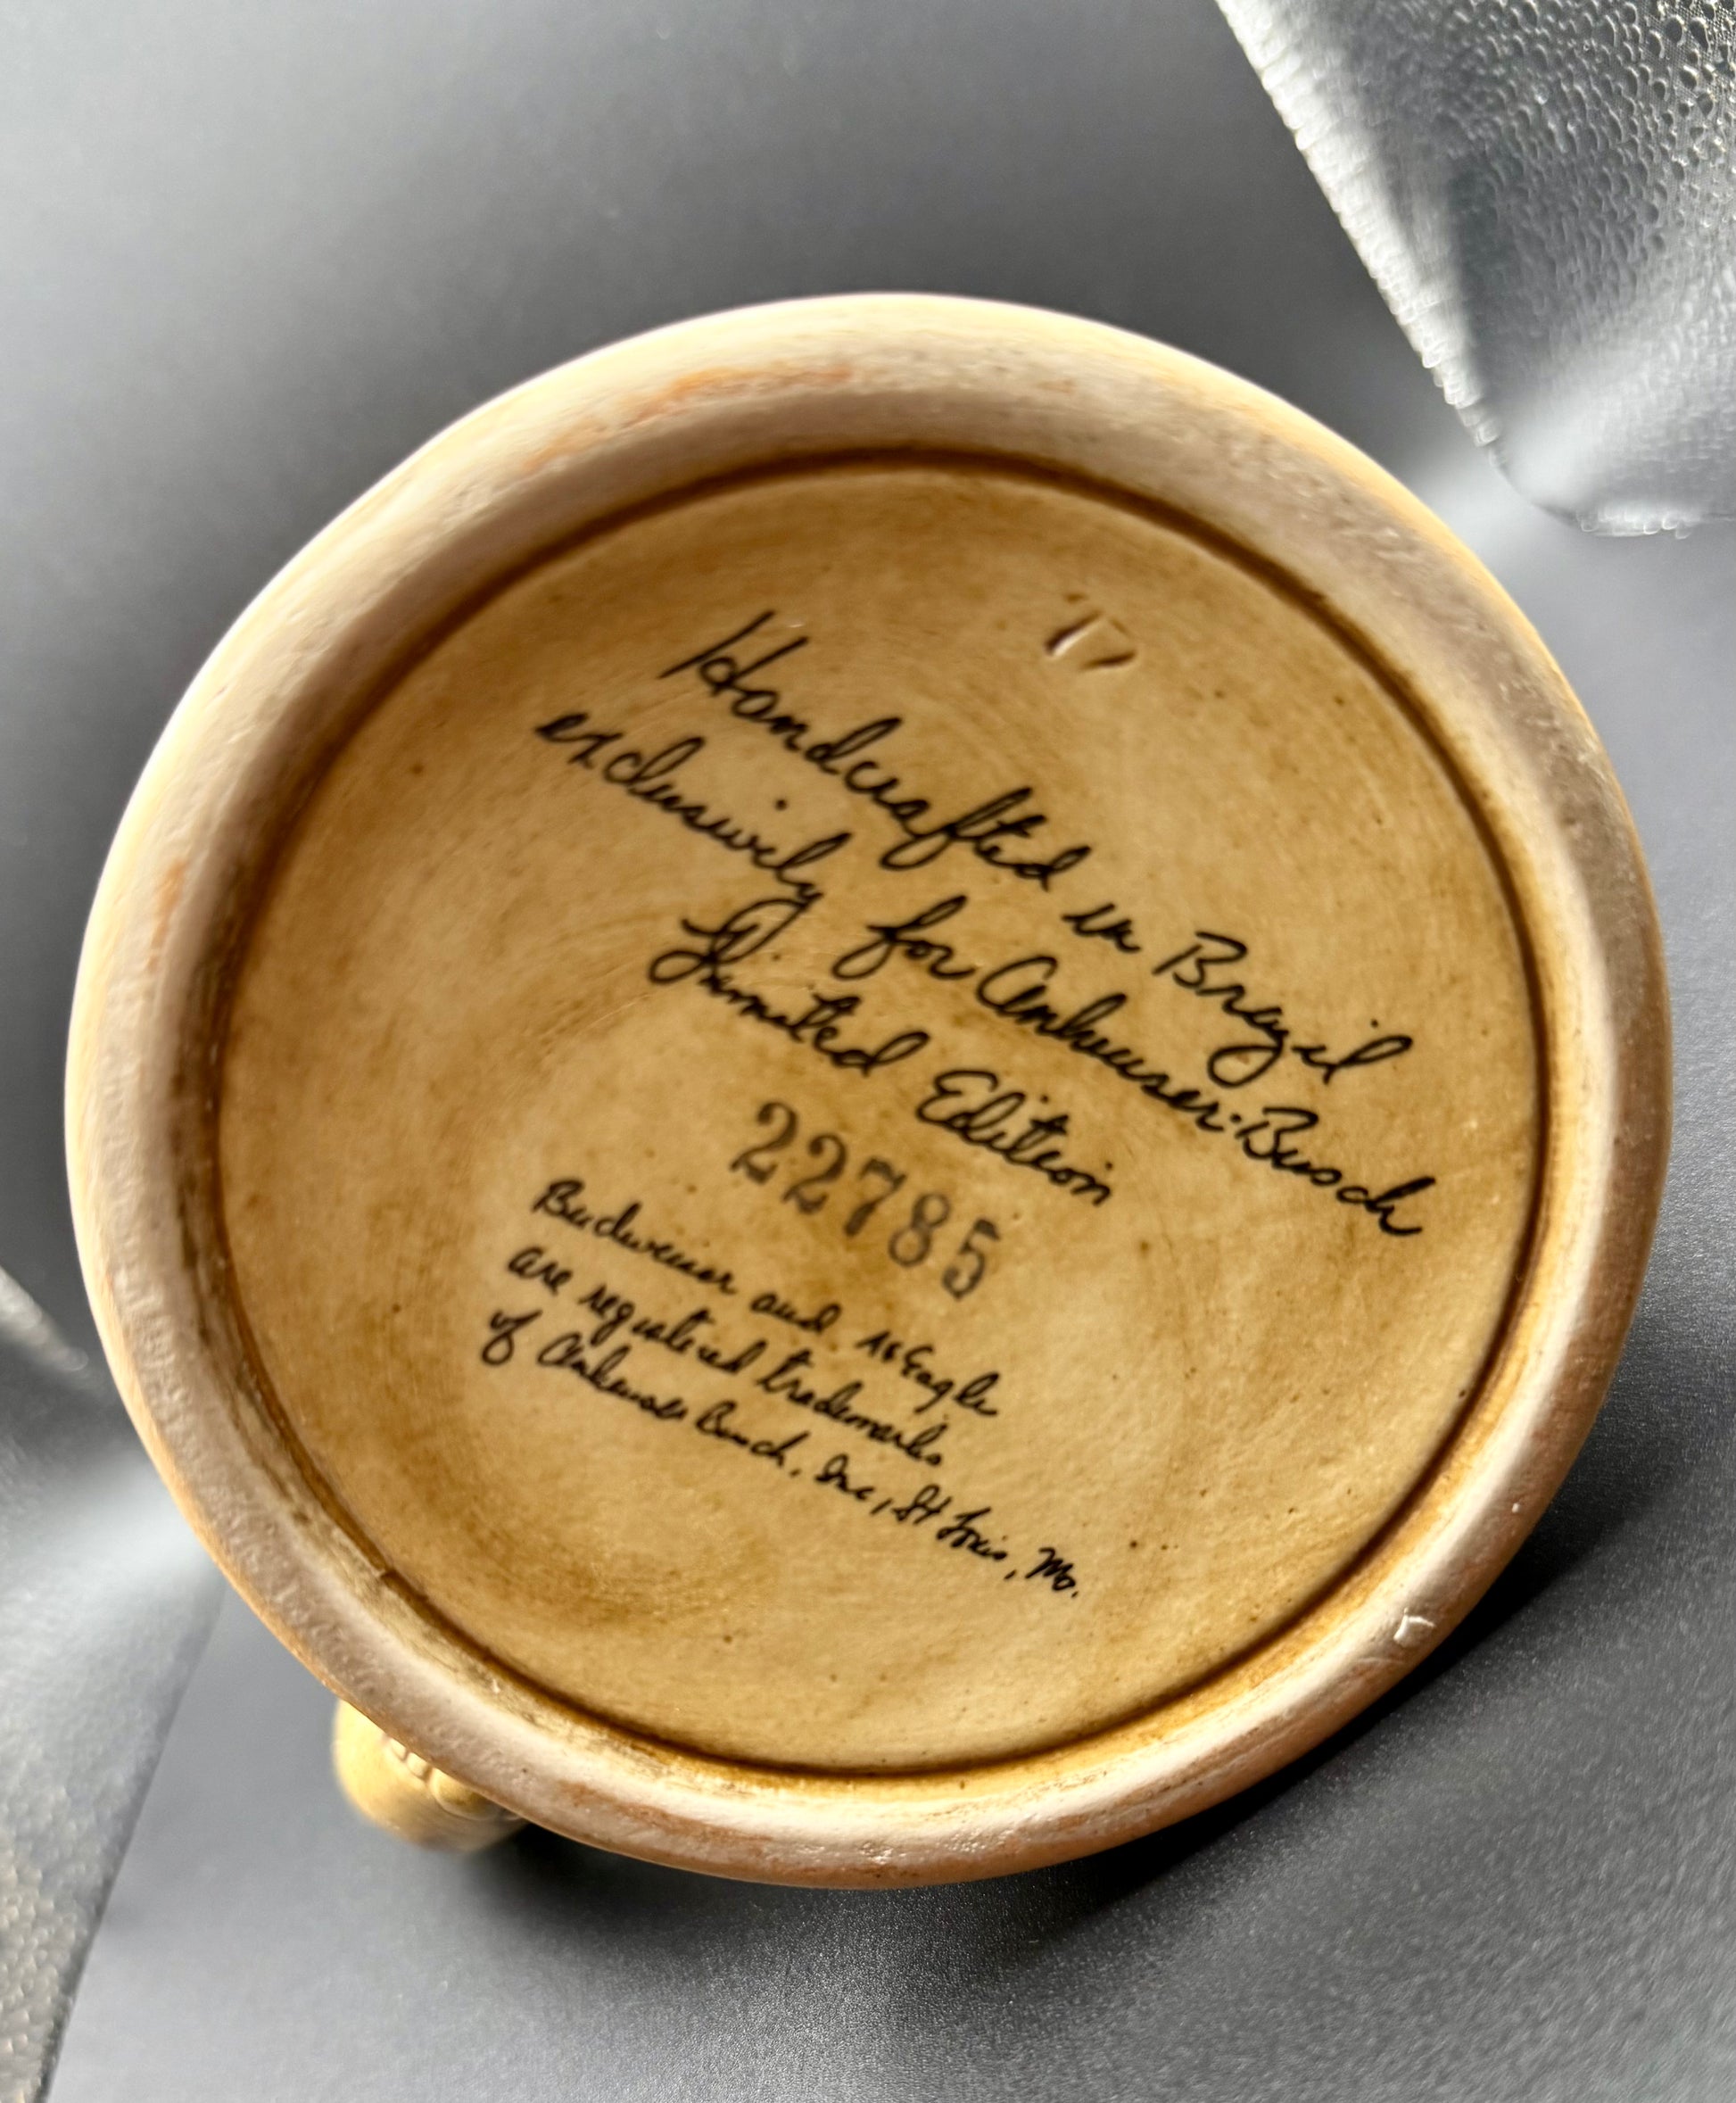 17
Handcrafted in Brazil
exclusively for Anheuser-Busch
Limited Edition
22785
Budweiser and A&Eagle
are registered trademarks
of Anheuser Busch, Inc, St Louis, Mo.